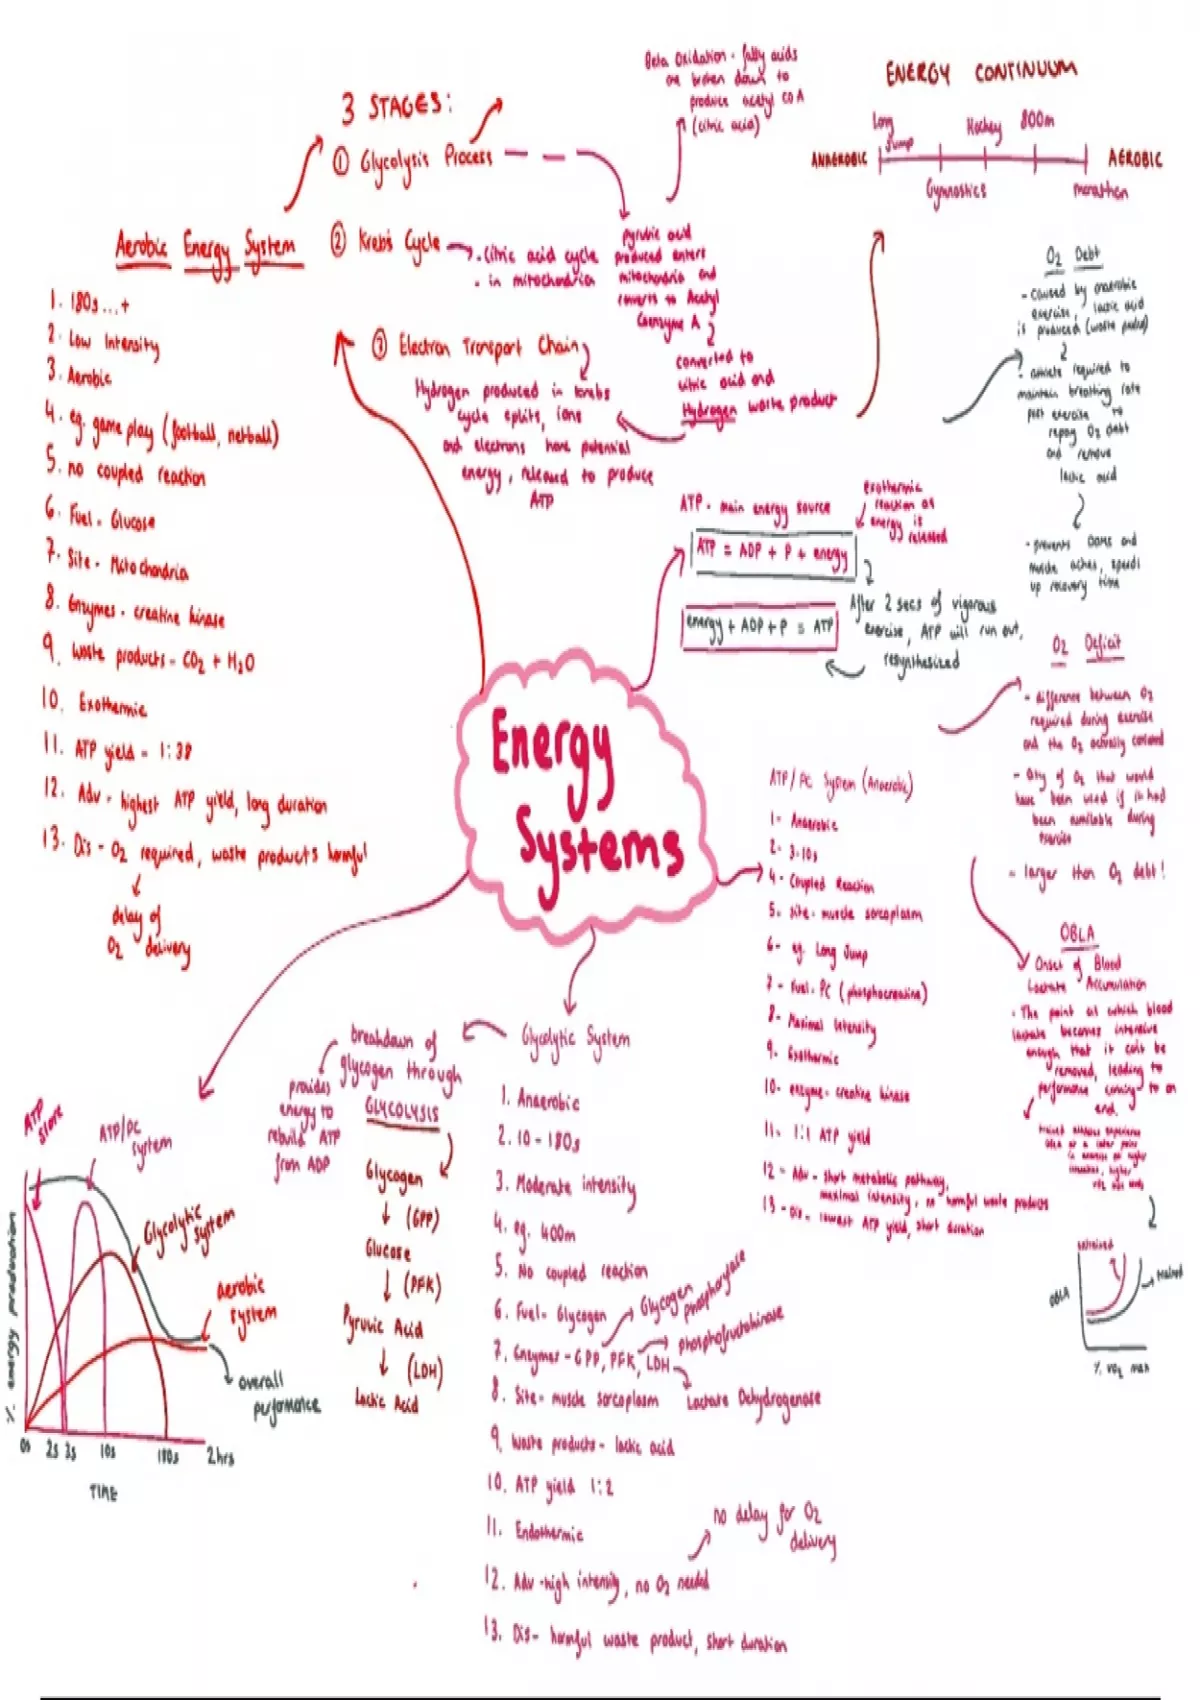 Energy
Systems
3 STAGES:
① Glycolysis Process
② Krebs Cycle
- citric acid cycle
- in mitochondria
③ Electron Transport Chain
Hydrogen produced in krebs
cycle splits, ions
and electrons have potential
energy, released to produce
ATP
Beta Oxidation - fatty acids
are broken down to
produce acetyl CO A
(citric acid)
pyruvic acid
produced enters
mitochondria and
converts to Acetyl
Coenzyme A
converted to
citric acid and
Hydrogen waste product
ENERGY CONTINUUM
Long
Jump
Hockey
800m
ANAEROBIC
AEROBIC
Gymnastics
marathon
Aerobic Energy System
1. 180s...+
2. Low Intensity
3. Aerobic
4. eg. game play (football, netball)
5. no coupled reaction
6. Fuel - Glucose
7. Site - Mitochondria
8. Enzymes - creatine kinase
9. Waste products - CO2 + H2O
10. Exothermic
11. ATP yield - 1:38
12. Adv - highest ATP yield, long duration
13. Dis - O2 required, waste products harmful
delay of
O2 delivery
ATP - main energy source
exothermic
reaction as
energy is
released
ATP = ADP + P + energy
energy + ADP + P = ATP
After 2 secs of vigorous
exercise, ATP will run out,
resynthesized
O2 Debt
- caused by anaerobic
exercise, lactic acid
is produced (waste product)
- athlete required to
maintain breathing rate
post exercise to
repay O2 debt
and remove
lactic acid
- prevents DOMS and
muscle aches, speeds
up recovery time
O2 Deficit
- difference between O2
required during exercise
and the O2 actually consumed
- Qty of O2 that would
have been used if it had
been available during
exercise
= larger than O2 debt!
OBLA
Onset of Blood
Lactate Accumulation
- The point at which blood
lactate becomes intensive
enough that it can't be
removed, leading to
performance coming to an
end.
trained athletes experience
OBLA at a later point
untrained
trained
OBLA
% VO2 max
ATP/PC System (Anaerobic)
1- Anaerobic
2- 3-10s
4- Coupled Reaction
5- site- muscle sarcoplasm
6- eg. Long Jump
7- Fuel- PC (phosphocreatine)
8- Maximal Intensity
9- Exothermic
10- enzyme- creatine kinase
11- 1:1 ATP yield
12- Adv- short metabolic pathway,
maximal intensity, no harmful waste products
13- Dis- lowest ATP yield, short duration
Glycolytic System
1. Anaerobic
2. 10-180s
3. Moderate intensity
4. eg. 400m
5. No coupled reaction
6. Fuel- Glycogen
7. Enzymes - GPP, PFK, LDH
Glycogen phosphorylase
phosphofructokinase
Lactate Dehydrogenase
8. Site- muscle sarcoplasm
9. Waste products- lactic acid
10. ATP yield 1:2
11. Endothermic
12. Adv -high intensity, no O2 needed
no delay for O2
delivery
13. Dis- harmful waste product, short duration
breakdown of
glycogen through
GLYCOLYSIS
provides
energy to
rebuild ATP
from ADP
Glycogen
(GPP)
Glucose
(PFK)
Pyruvic Acid
(LDH)
Lactic Acid
ATP
store
ATP/PC
system
Glycolytic
system
aerobic
system
overall
performance
% energy production
0s 2s 3s 10s 180s 2hrs
TIME